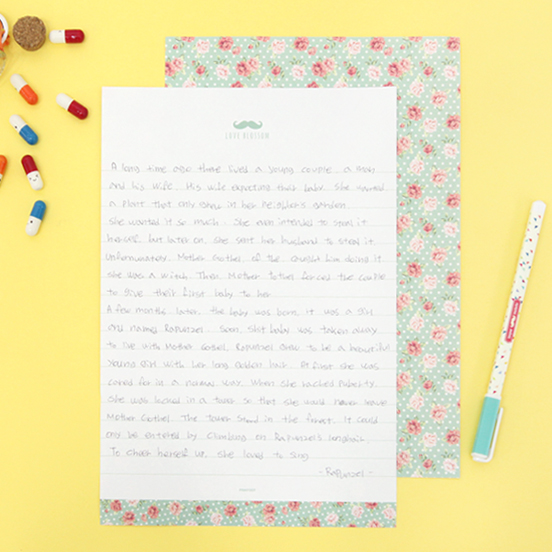 LOVE BLOSSOM
A long time ago there lived a young couple, a man
and his wife. His wife expecting their baby. She wanted
a plant that only grow in her neighbor's garden.
She wanted it so much. She even intended to steal it
herself, but later on, she sent her husband to steal it.
Unfortunately, Mother Gothel, of the caught him doing it
she was a witch. Then Mother forced the couple
to give their first baby to her
A few months later, the baby was born, it was a girl
and named Rapunzel. Soon, baby was taken away
to live with Mother Gothel. Rapunzel grew to be a beautiful
young girl with her long golden hair. At first she was
cared for in a normal way. When she reached puberty,
she was locked in a tower so that she would never leave
Mother Gothel. The tower stood in the forest. It could
only be entered by climbing on Rapunzel's longhair.
To cheer herself up, she loved to sing
- Rapunzel -